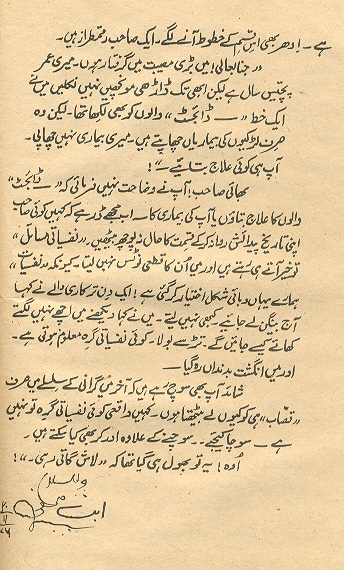 ہے ۔ اِدھر بھی اِس قسم کے خطوط آنے لگے۔ ایک صاحب رقمطراز ہیں۔
"جنابعالی! میں بڑی مصیبت میں گرفتار ہوں۔ میری عمر
پچیس سال ہے لیکن ابھی تک ڈاڑھی مونچھیں نہیں نکلیں میں نے
ایک خط "— ڈائجسٹ" والوں کو بھی لکھا تھا۔ لیکن وہ
صرف لڑکیوں کی بیماریاں چھاپتے ہیں۔ میری بیماری نہیں چھاپی۔
آپ ہی کوئی علاج بتائیے —"!
بھائی صاحب! آپ نے وضاحت نہیں فرمائی کہ "— ڈائجسٹ"
والوں کا علاج بتاؤں یا آپ کی بیماری کا۔ اب مجھے ڈر ہے کہ کہیں کوئی صاحب
اپنی تاریخ پیدائش روانہ کر کے قسمت کا حال نہ پوچھ بیٹھیں۔ "نفسیاتی مسائل"
تو خیر آتے ہی رہتے ہیں اور میں اُن کا قطعی نوٹس نہیں لیتا۔ کیونکہ "نفسیات"
ہمارے یہاں وبائی شکل اختیار کر گئی ہے! ایک دن ترکاری والے نے کہا
آج بینگن لے جائیے۔ کبھی نہیں لیتے۔ میں نے کہا دیکھنے میں اچھے نہیں لگتے
کھائے کیسے جائیں گے۔ تڑ سے بولا۔ کوئی نفسیاتی گرہ معلوم ہوتی ہے۔
اور میں انگشت بدنداں رہ گیا —
شائد آپ بھی سوچ رہے ہیں کہ آخر میں گرانی کے سلسلے میں صرف
"قصّاب" ہی کو کیوں لے بیٹھتا ہوں۔ کہیں واقعی کوئی نفسیاتی گرہ تو نہیں
ہے — سوچا کیجئے۔۔ سوچنے کے علاوہ اور کر بھی کیا سکتے ہیں۔
اُوہ! یہ تو بھول ہی گیا تھا کہ "لاش گاتی رہی۔"!
والسلام
ابن صفی